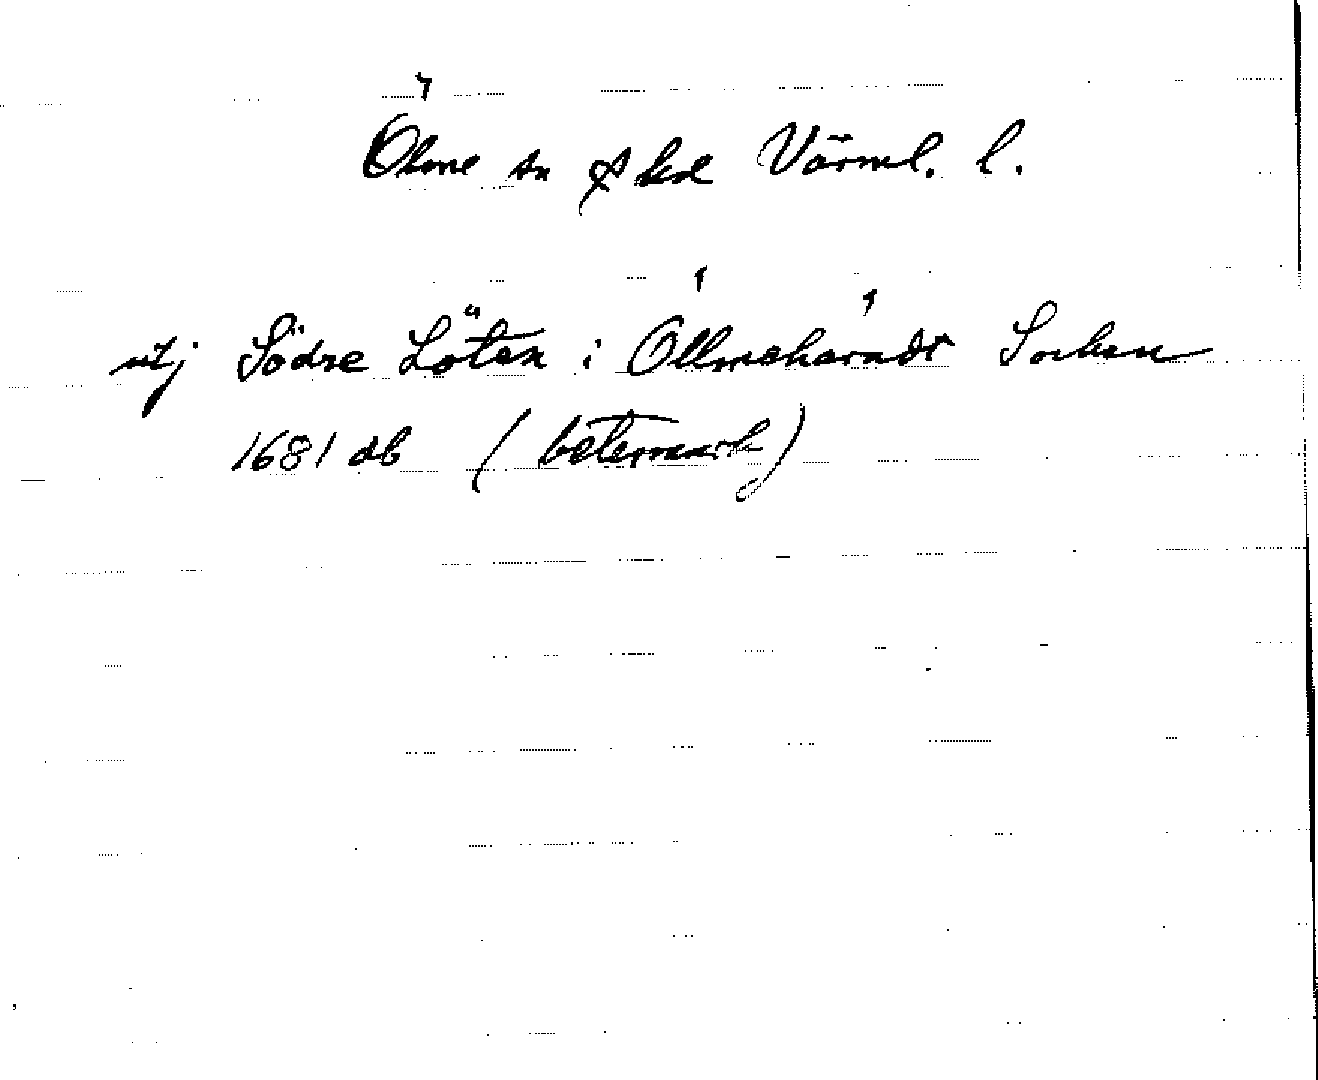 Ölme sn Ö hd Värml. l.
utj Södre Löten i Öllmehärads Socken
1681 db (betesmark)